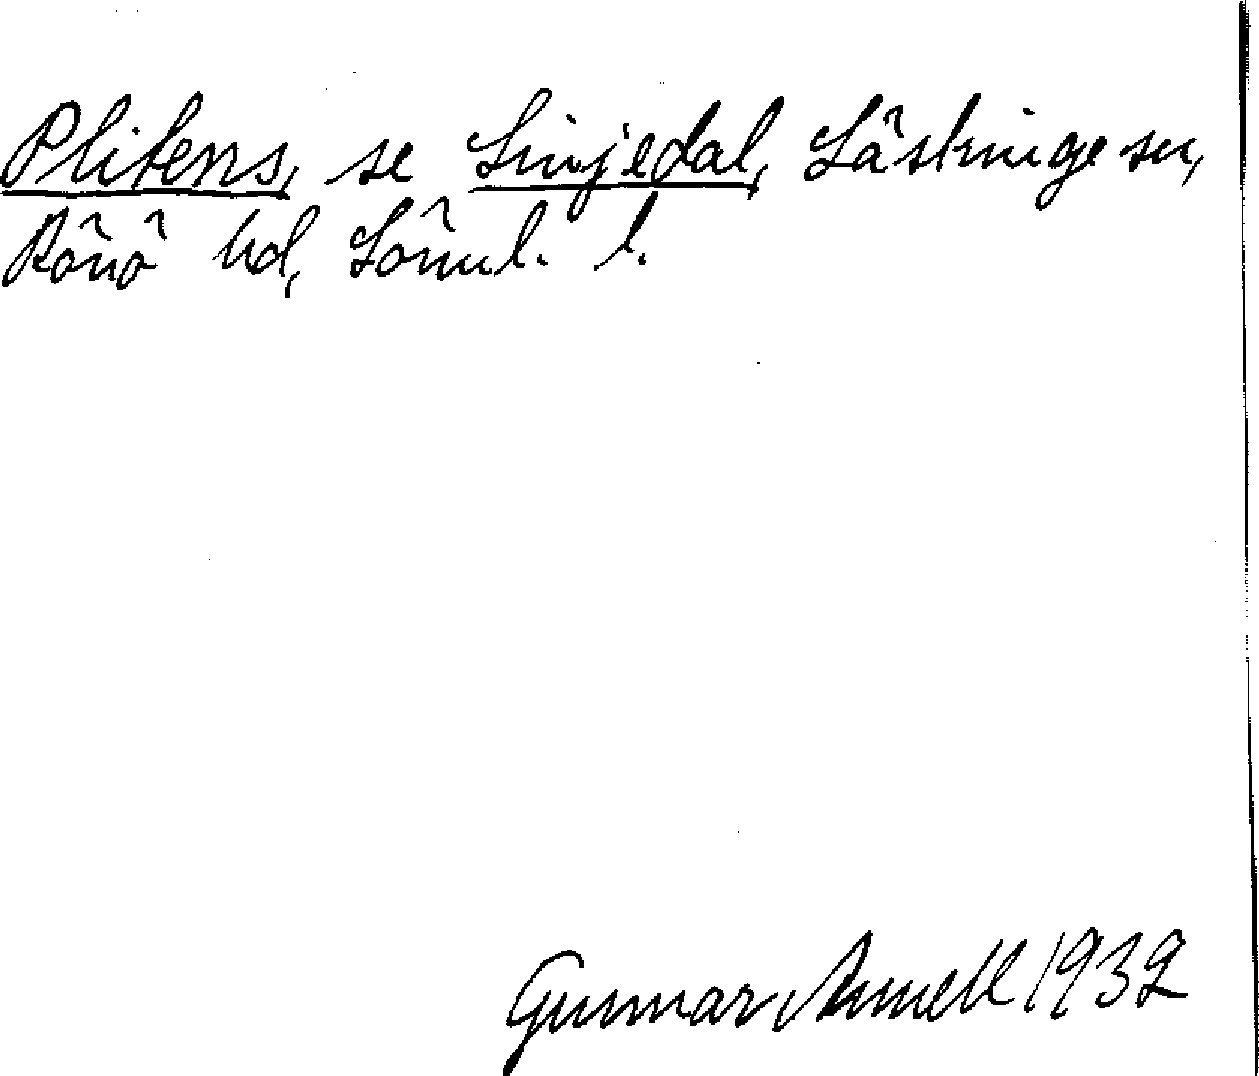 Plitens, se Linjedal, Lästringe sn,
Rönö hd, Sörml. l.
Gunnar Annell 1932